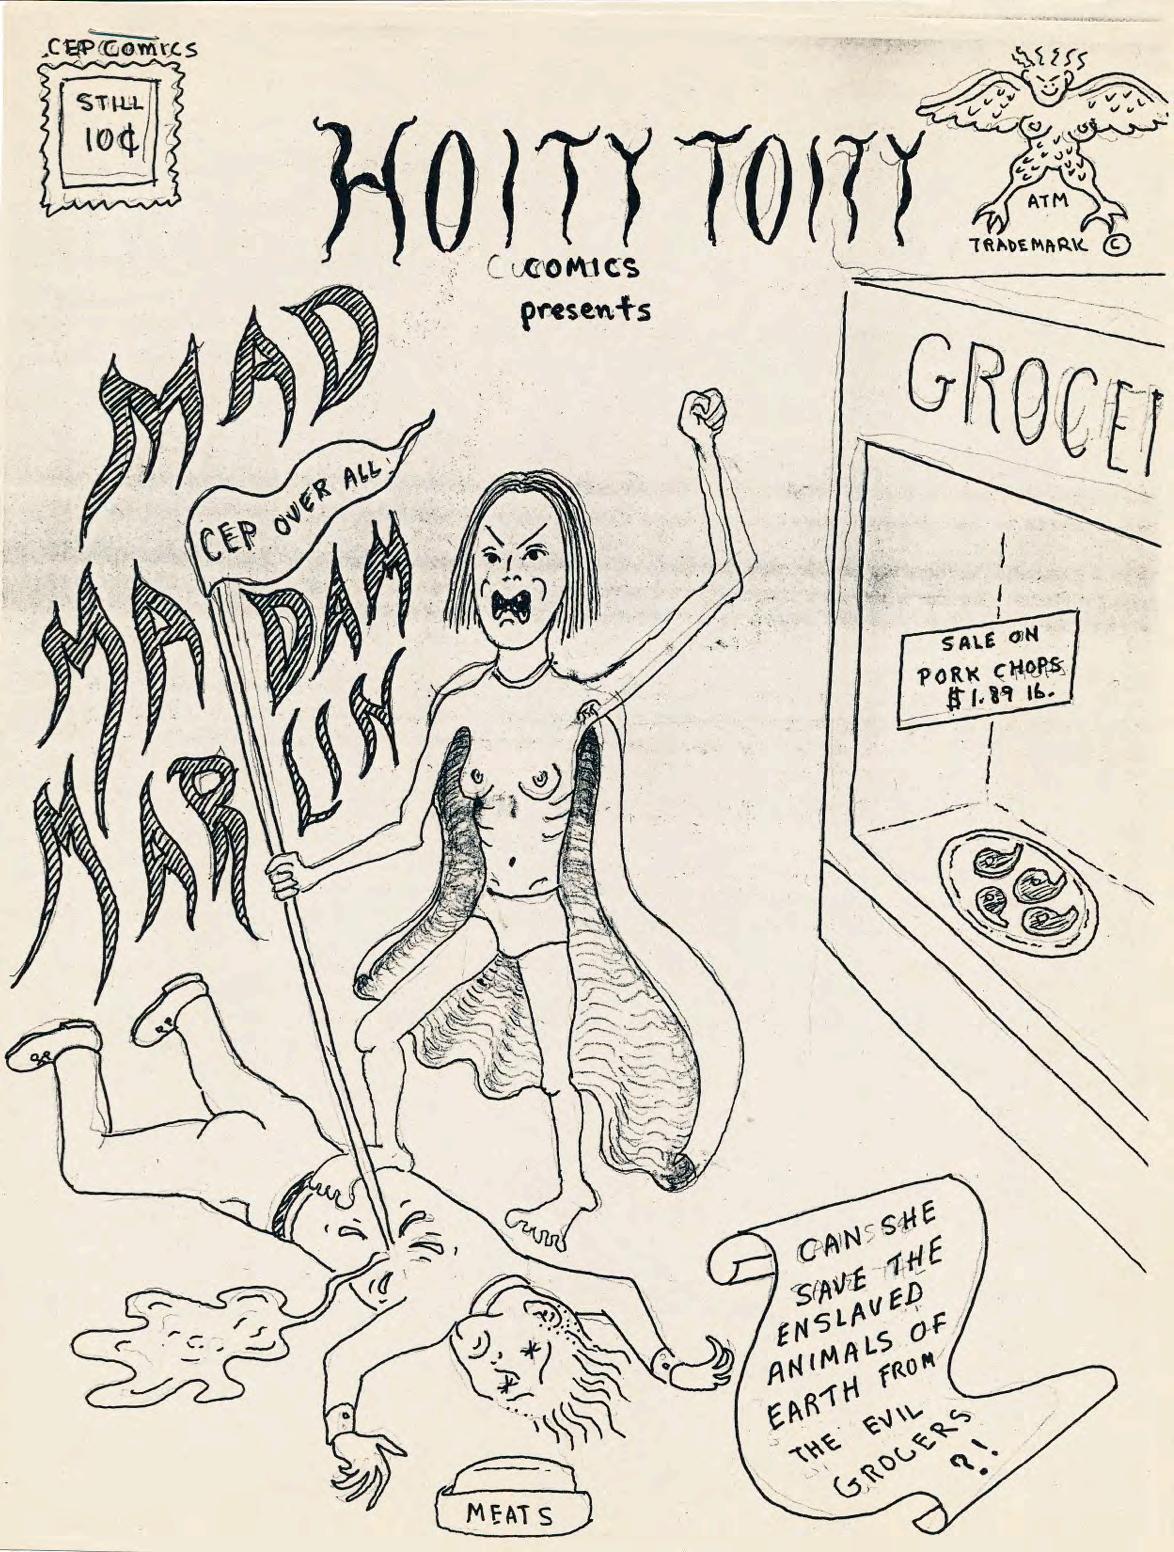 CEP Comics
STILL
10¢
HOITY TOITY
COMICS
presents
ATM
TRADEMARK ©
MAD
MADAM
MARLIN
CEP OVER ALL!
GROCER
SALE ON
PORK CHOPS
$1.89 lb.
CAN SHE
SAVE THE
ENSLAVED
ANIMALS OF
EARTH FROM
THE EVIL
GROCERS
?!
MEATS